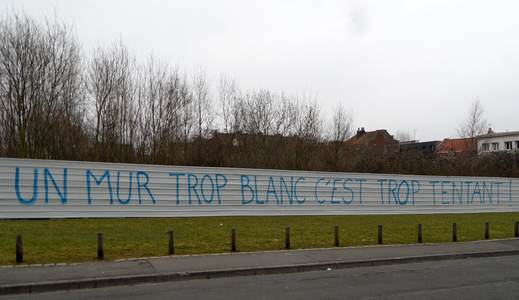 UN MUR TROP BLANC C'EST TROP TENTANT !